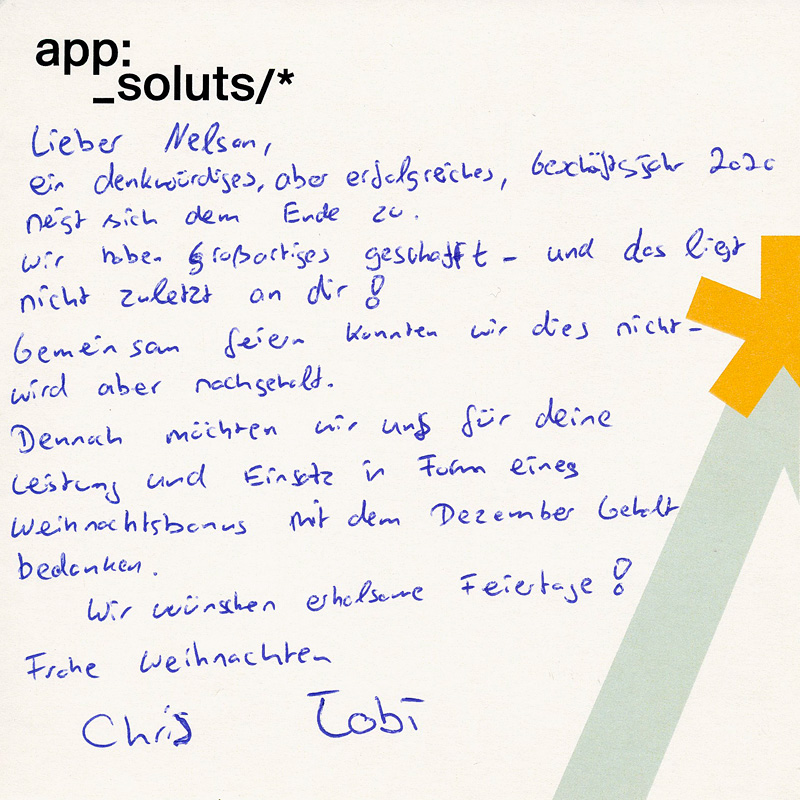 app:
_soluts/*
Lieber Nelson,
ein denkwürdiges, aber erfolgreiches, Geschäftsjahr 2020
neigt sich dem Ende zu.
Wir haben großartiges geschafft – und das liegt
nicht zuletzt an dir!
Gemeinsam feiern konnten wir dies nicht –
wird aber nachgeholt.
Dennoch möchten wir uns für deine
Leistung und Einsatz in Form eines
Weihnachtsbonus mit dem Dezember Gehalt
bedanken.
Wir wünschen erholsame Feiertage!
Frohe Weihnachten
Chris Tobi